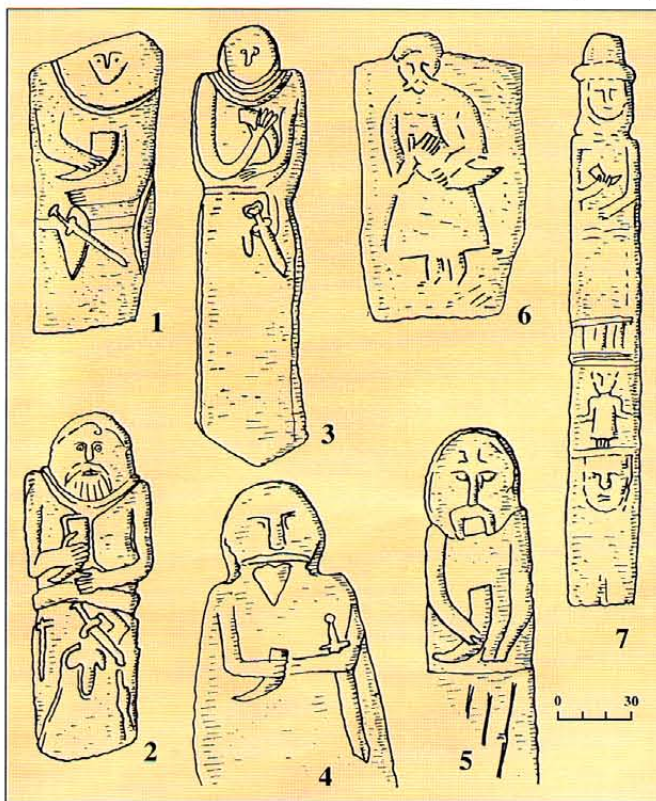 1
3
6
2
4
5
7
0 30